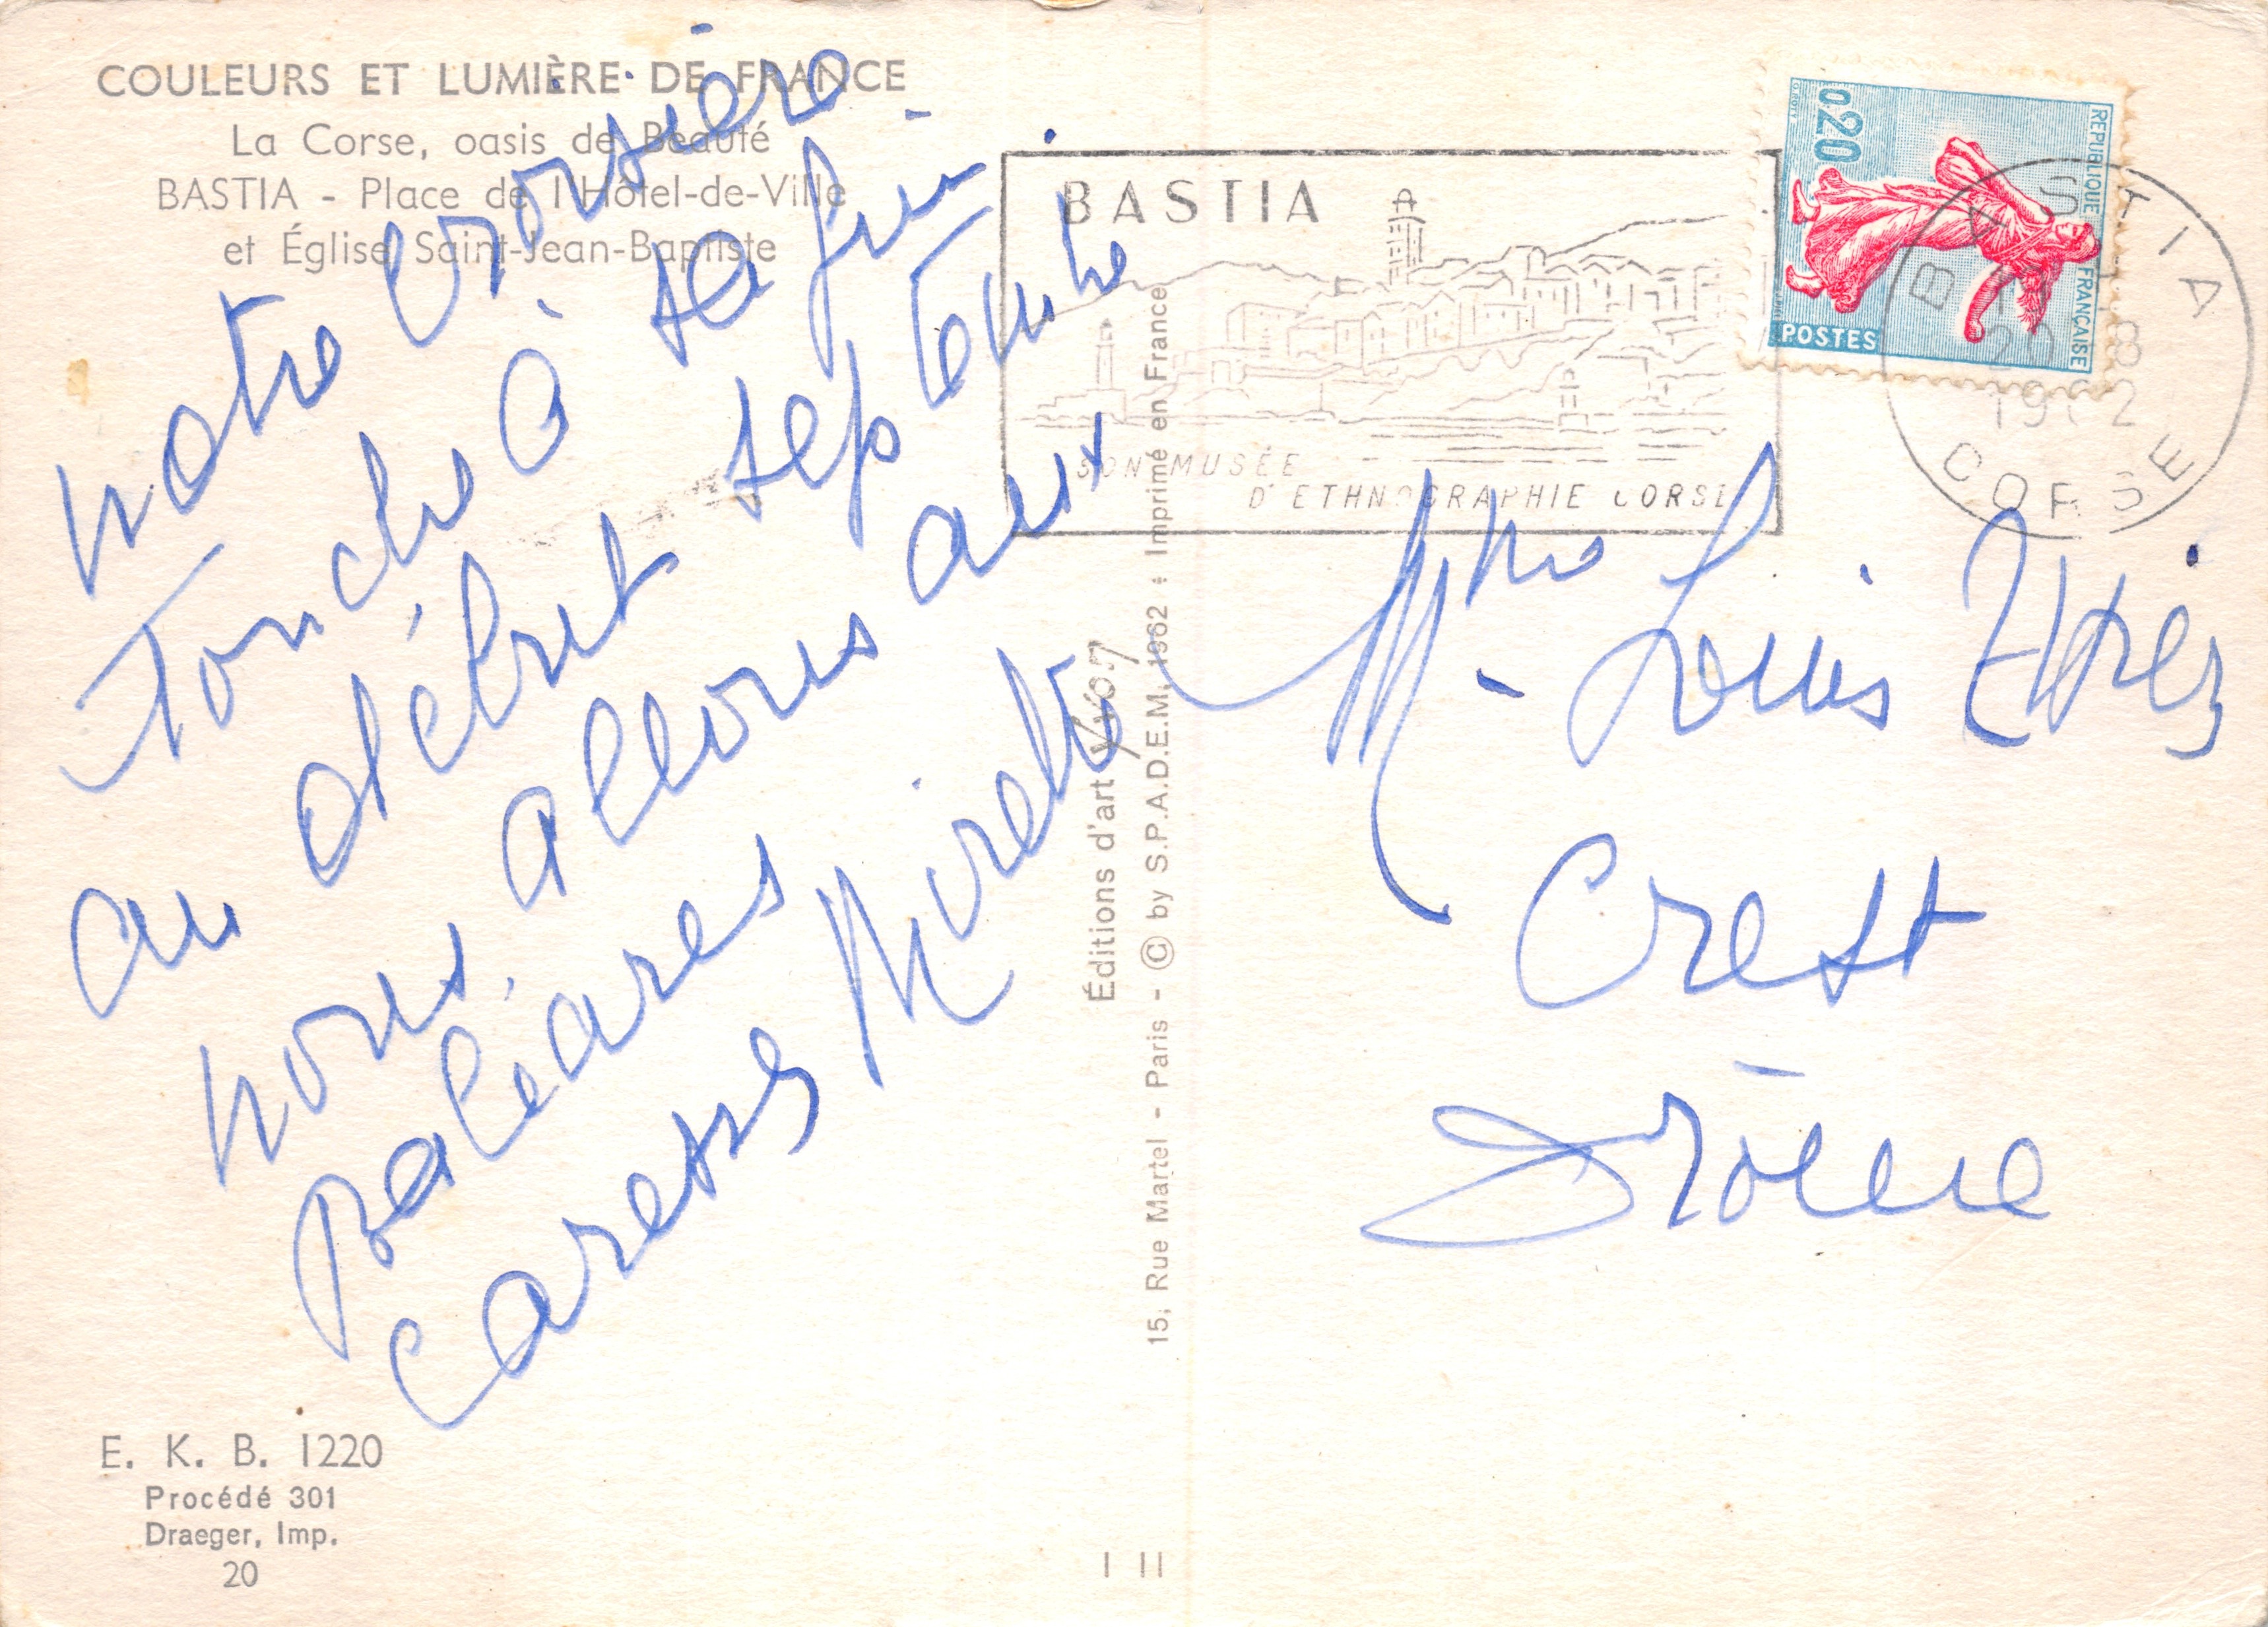 COULEURS ET LUMIÈRE DE FRANCE
La Corse, oasis de Beauté
BASTIA - Place de l'Hôtel-de-Ville
et Église Saint-Jean-Baptiste
notre croisière
touche à sa fin
au début septembre
nous allons aux
Baléares
Caresses Mireille
E. K. B. 1220
Procédé 301
Draeger, Imp.
20
Éditions d'art Yvon
15, Rue Martel - Paris - © by S.P.A.D.E.M. 1962 : Imprimé en France
I II
BASTIA
SON MUSÉE
D'ETHNOGRAPHIE CORSE
0,20
REPUBLIQUE FRANÇAISE
POSTES
BASTIA
20 8
1962
CORSE
Mme Louis
Crest
Drôme